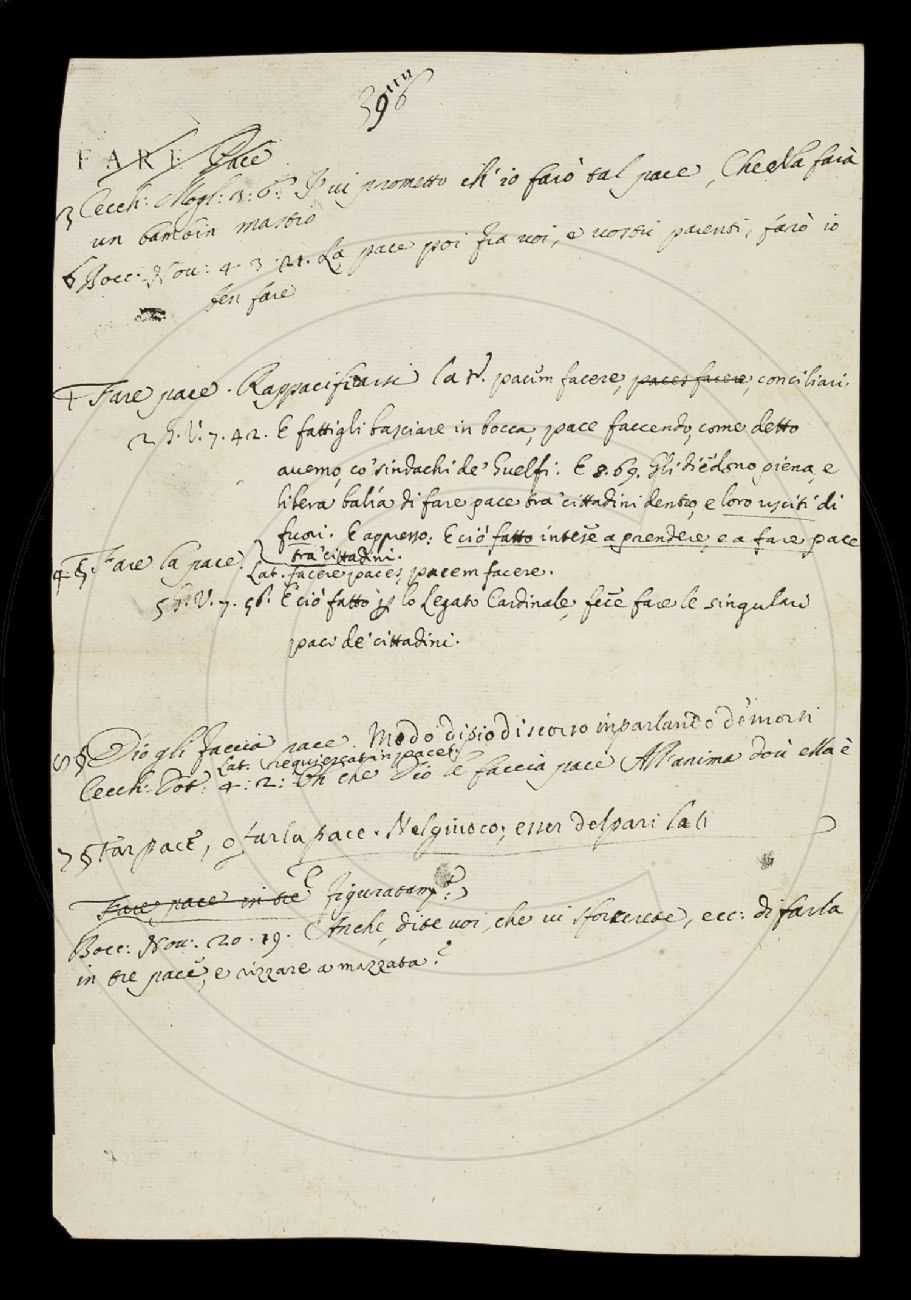 396
FARE Pace
3 Cecch: Mogl: 3: 6: Io vi prometto ch'io farò tal pace, Che ella farà
un bambin mastio
6 Bocc: Nov: 4. 3. 21. La pace poi fra voi, e vostri parenti, farò io
ben fare
1 Fare pace. Rappacificarsi Lat. pacem facere, paces facere, conciliari.
2 G. V. 7. 42. E fattigli basciare in bocca, pace faccendo, come detto
avemo, co' sindachi de' Guelfi: E 8. 69. Gli diēdono piena, e
libera balía di fare pace tra' cittadini dentro, e loro usciti di
fuori. E appresso: E ciò fatto intese a prendere, e a fare pace
tra' cittadini.
4. § Fare la pace.
Lat. facere paces, pacem facere.
5 G. V. 7. 56. E ciò fatto lo Legato Cardinale, fece fare le singulari
paci de' cittadini.
8 § Dio gli faccia pace. Modo di pio discorso in parlando de' morti
Lat. requiescat in pace
Cecch: Dot: 4: 2: Oh che Dio le faccia pace All'anima dov' ella è
7 § Far pace, o farla pace. Nel giuoco; esser del pari Lat
Fare pace in tre figuratam:
Bocc: Nov: 20. 19. Anche dite voi, che vi sforzerete, ecc: di farla
in tre pace, e rizzare a mazzata?